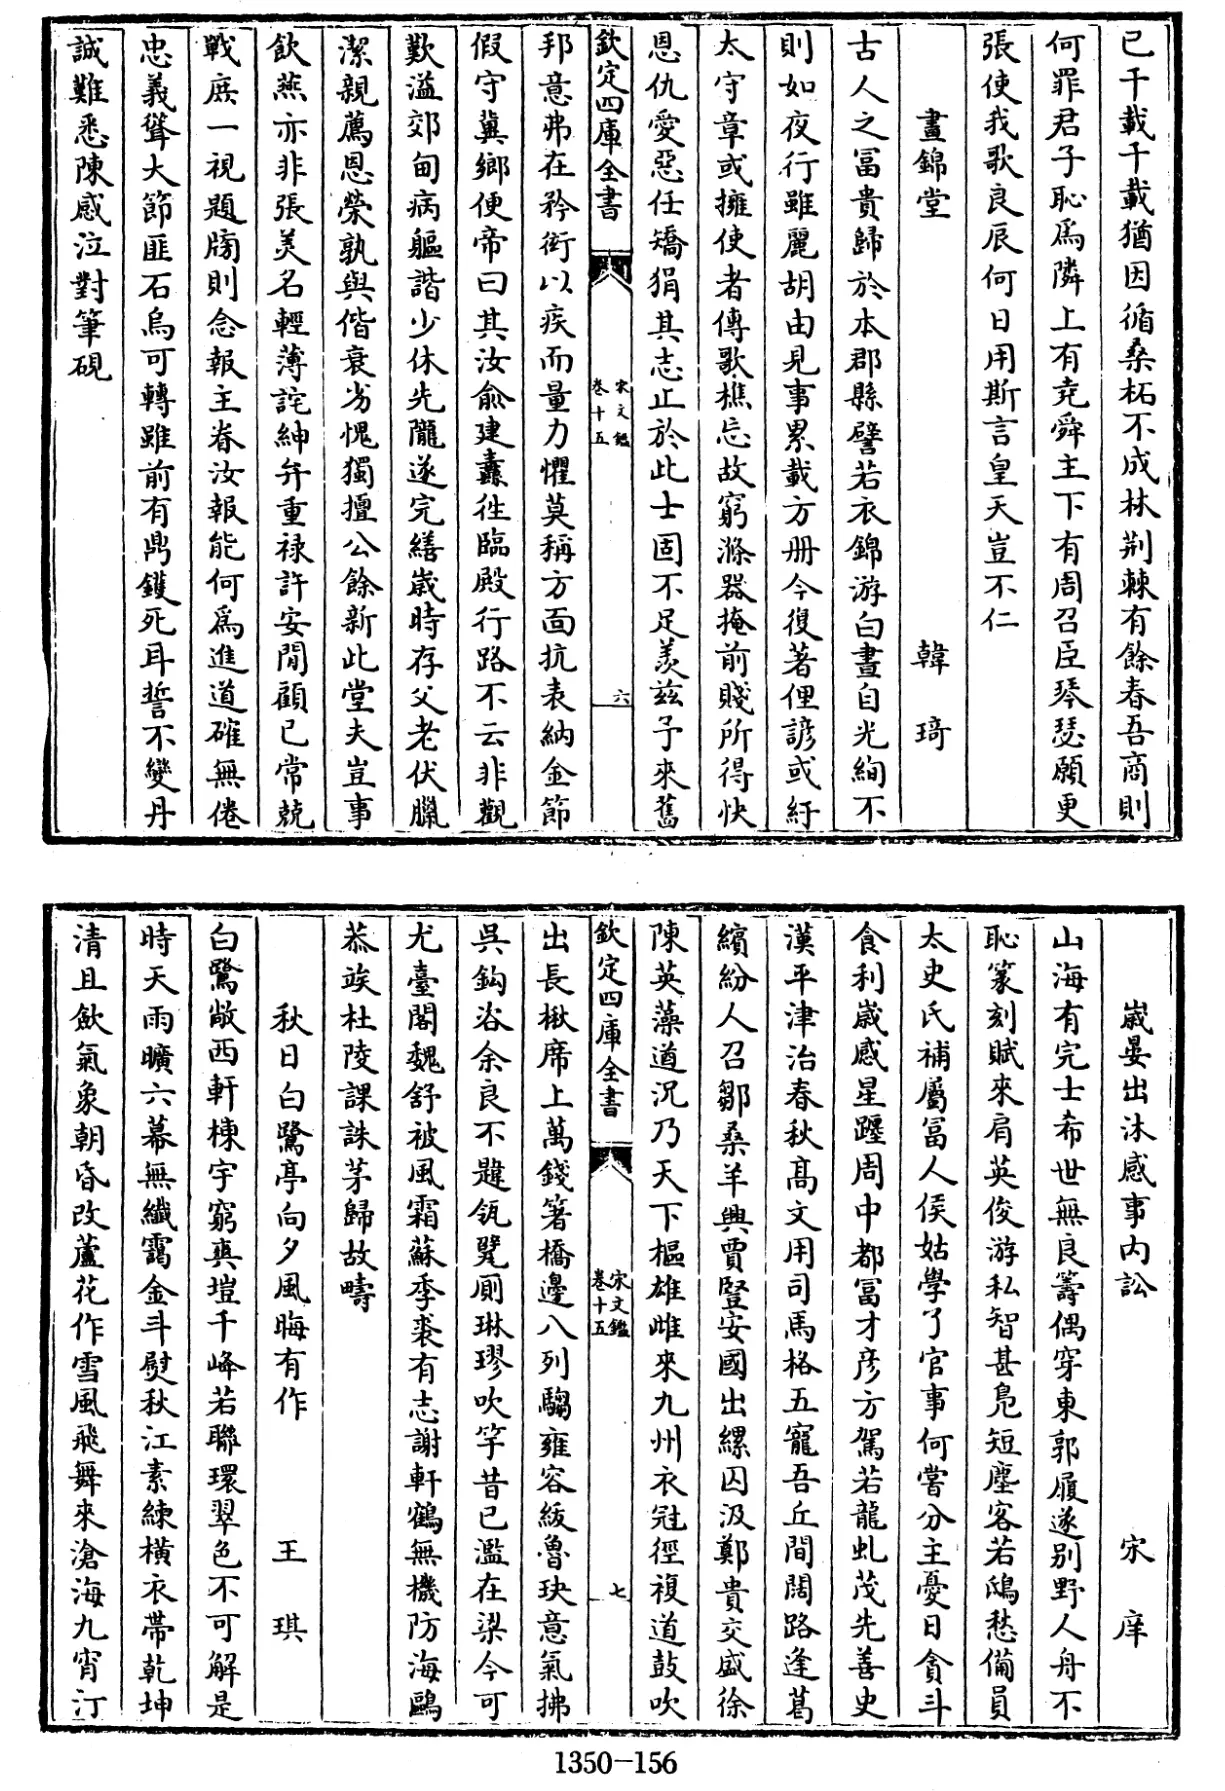 已千載千載猶因循桑柘不成林荆棘有餘春吾商則
何罪君子恥爲隣上有堯舜主下有周召臣琴瑟願更
張使我歌良辰何日用斯言皇天豈不仁
晝錦堂 韓琦
古人之富貴歸於本郡縣譬若衣錦游白晝自光絢不
則如夜行雖麗胡由見事累載方册今復著俚諺或紆
太守章或擁使者傳歌樵忘故窮滌器掩前賤所得快
恩仇愛惡任矯狷其志止於此士固不足羡兹予來舊
欽定四庫全書 宋文鑑 卷十五 六
邦意弗在矜衒以疾而量力懼莫稱方面抗表納金節
假守冀鄉便帝曰其汝俞建纛徃臨殿行路不云非觀
歎溢郊甸病軀諧少休先隴遂完繕歲時存父老伏臘
潔親薦恩榮孰與偕衰劣愧獨擅公餘新此堂夫豈事
飲燕亦非張美名輕薄詫紳弁重禄許安閒顧已常兢
戰庶一視題牓則念報主眷汝報能何爲進道確無倦
忠義聳大節匪石烏可轉雖前有鼎鑊死耳誓不變丹
誠難悉陳感泣對筆硯
歲晏出沐感事内訟 宋庠
山海有完士希世無良籌偶穿東郭履遂别野人舟不
恥篆刻賦來肩英俊游私智甚鳬短塵客若鴟愁備員
太史氏補屬富人侯姑學了官事何嘗分主憂日貪斗
食利歲感星躔周中都富才彦方駕若龍虬茂先善史
漢平津治春秋高文用司馬格五寵吾丘間闊路逢葛
繽紛人召鄒桑羊興賈豎安國出縲囚汲鄭貴交盛徐
陳英藻遒况乃天下樞雄雌來九州衣冠徑複道鼓吹
欽定四庫全書 宋文鑑 卷十五 七
出長楸席上萬錢箸橋邊八列騶雍容緩魯玦意氣拂
吳鈎咨余良不韙瓴甓厠琳璆吹竽昔已濫在梁今可
尤臺閣魏舒被風霜蘇季裘有志謝軒鶴無機防海鷗
恭竢杜陵課誅茅歸故疇
秋日白鷺亭向夕風晦有作 王琪
白鷺敞西軒棟宇窮爽塏千峰若聯環翠色不可解是
時天雨曠六幕無纖靄金斗熨秋江素練横衣帶乾坤
清且歛氣象朝昏改蘆花作雪風飛舞來滄海九宵汀
1350-156